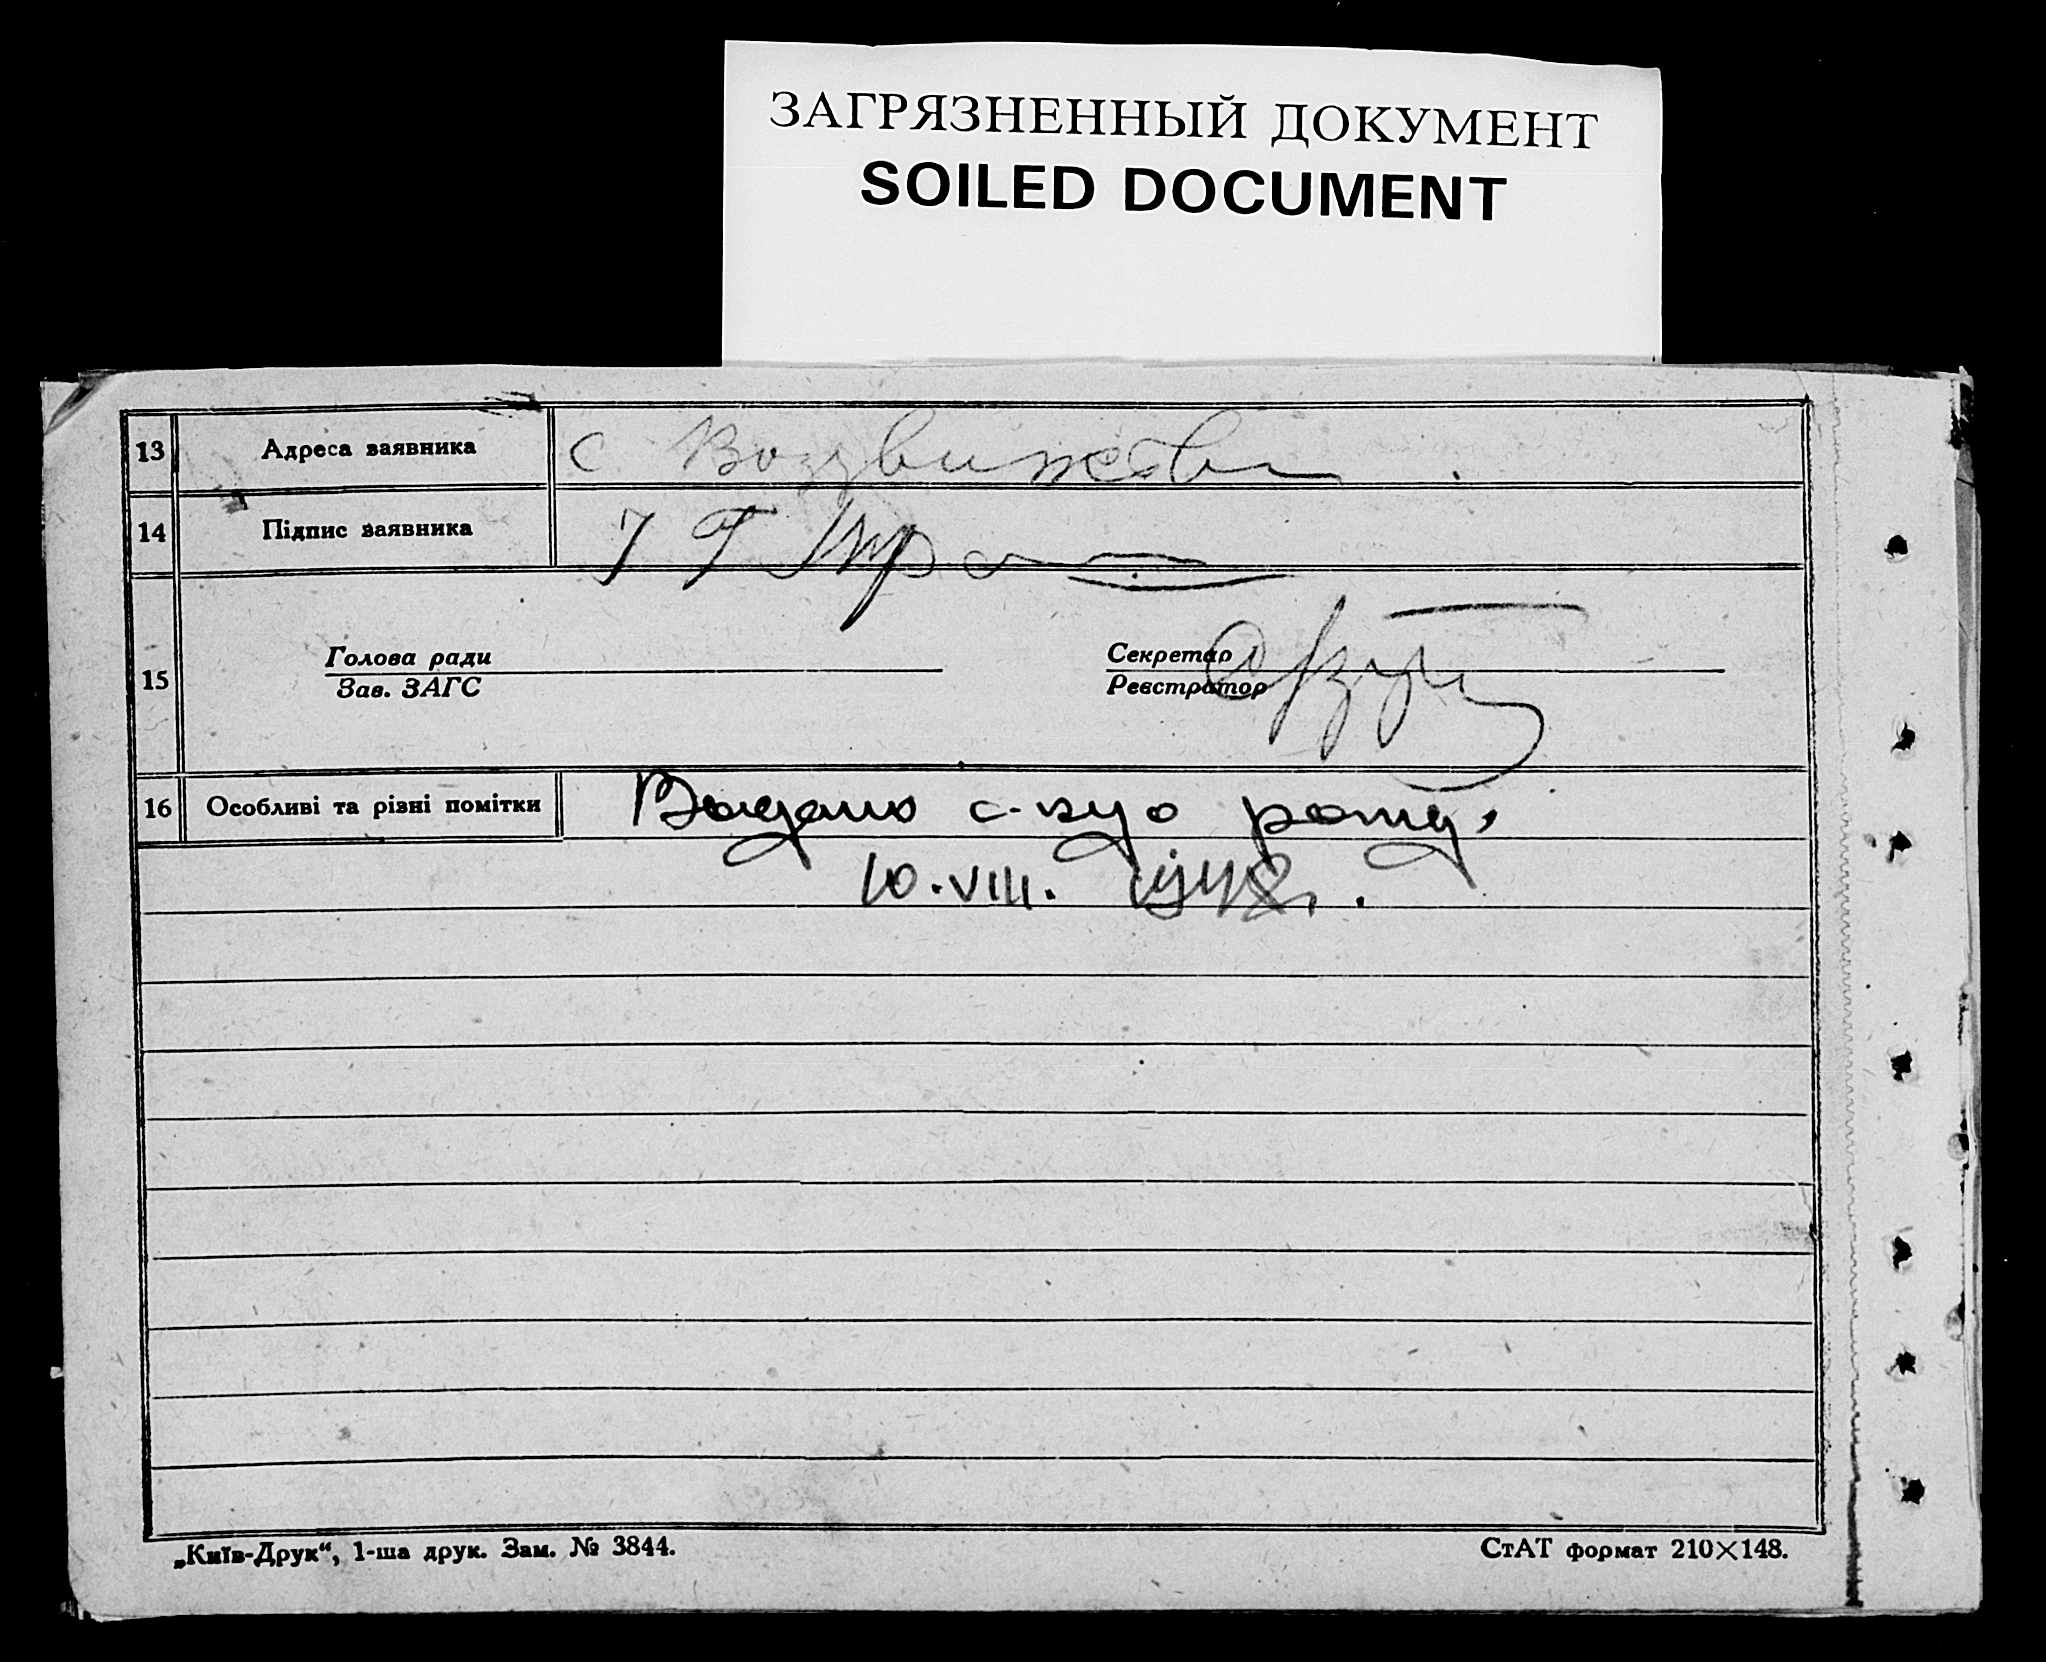 ЗАГРЯЗНЕННЫЙ ДОКУМЕНТ
SOILED DOCUMENT
13 Адреса заявника с Воздвижовка
14 Підпис заявника
15 Голова ради Секретар
Зав. ЗАГС Реєстратор
16 Особливі та різні помітки Выдано с-во
10.VIII. 1948г.
„Київ-Друк“, 1-ша друк. Зам. № 3844. СтАТ формат 210×148.